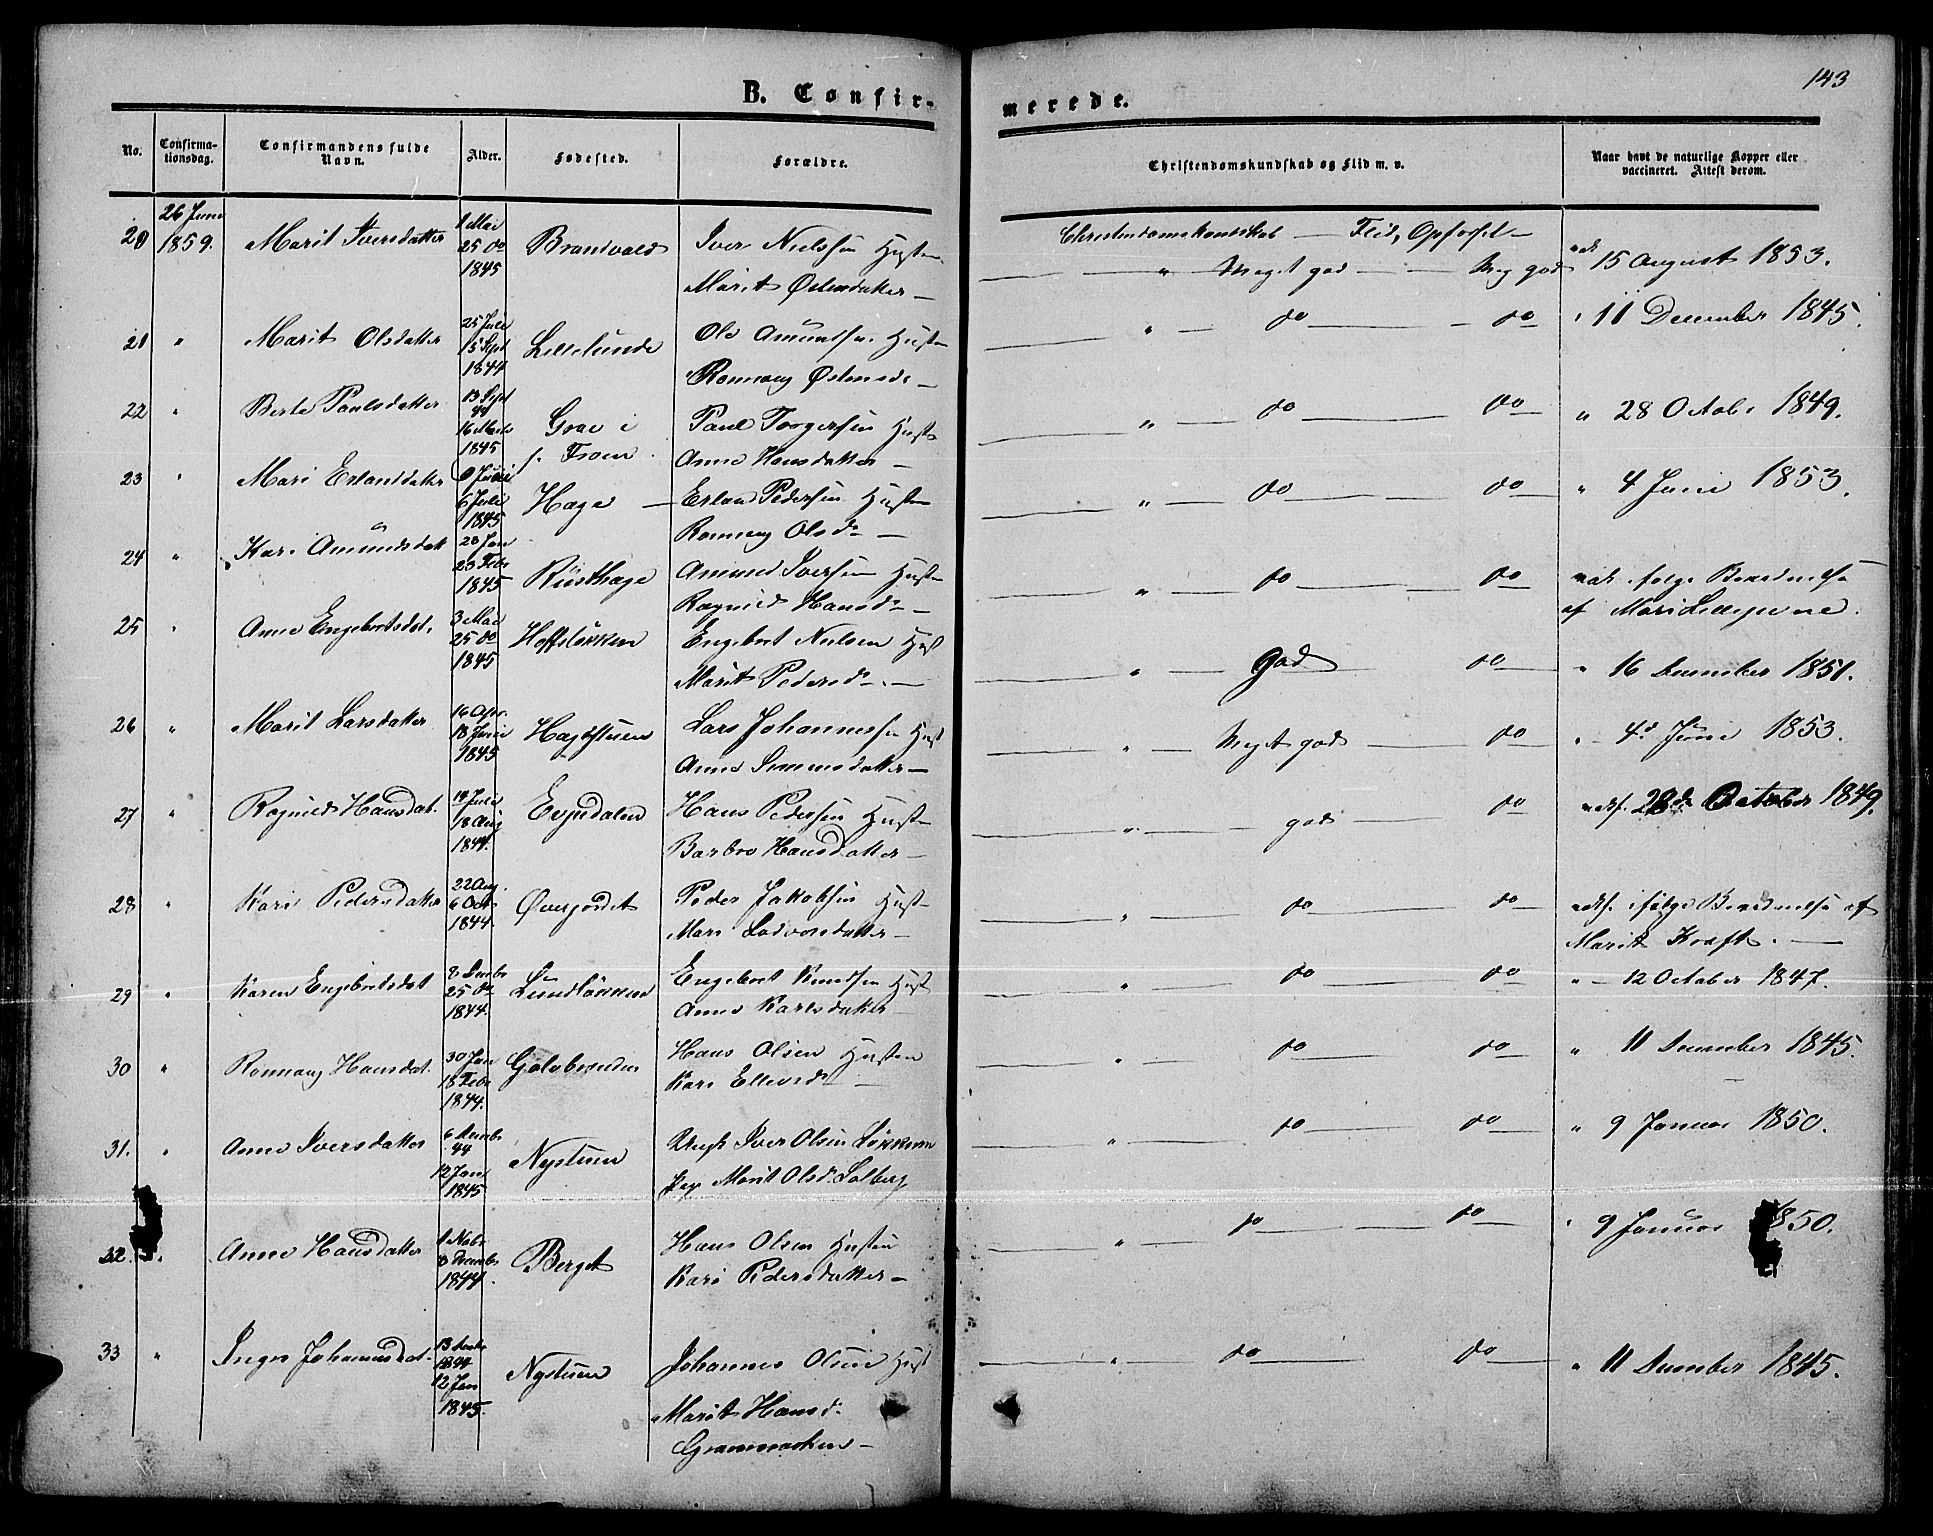 143
B. Confir-
merede.
No.
Confirma-
tionsdag.
Confirmandens fulde
Navn.
Alder.
Fødested.
Forældre.
Christendomskundskab og Flid m. v.
Naar havt de naturlige Kopper eller
vaccineret. Attest derom.
26 Juni
20 1859. Marit Iversdatter
1 Mai
25 do
1845
Brandvold
Iver Nielsen Hust
Marit Østensdatter —
Christendomskundskab — Flid, Opførsel —
" Meget god — Meg god
15 August 1853.
21 " Marit Olsdatter
25 Juli
15 Sept
1844
Lillelunde
Ole Amundsen Hust
Ronnaug Østensd. —
" do do
" 11 December 1845.
22 " Berte Paulsdatter
13 Sept
44
16 Marts
1845
Grae i
s. Fron
Paul Torgersen Hust
Anne Hansdatter —
" do do
" 28 Octobr 1849.
23 " Mari Erlandsdatter
6 Juli
1845
Hage —
Erland Pedersen Hust
Ronnaug Olsd —
" do do
" 4 Juni 1853.
24 " Kari Amundsdatt
23 Febr
1845
Rusthage
Amund Iversen Hust
Ragnild Hansd —
" do do
vac. ifølge Bevidnelse
af Mari
25 " Anne Engebretsdat.
3 Mai
25 do
1845
Hoffsløkken
Engebret Nielsen Hust
Marit Pedersd. —
" god do
" 16 December 1851.
26 " Marit Larsdatter
16 Apr.
18 Juni
1845
Hagestuen
Lars Johannessen Hust
Anne Simensdatter —
" Meget god do
" 4d Juni 1853.
27 " Ragnild Hansdat.
14 Juli
18 Aug
1844.
Evjudalen
Hans Pedersen Hust
Barbro Hansdatter —
" god do
28de October 1849.
28 " Kari Pedersdatter
22 Aug.
6 Oct
1844.
Øverjordet
Peder Jakobsen Hust
Mari —
" do do
ifølge Bevidnelse af
Marit Kraft. —
29 " Karen Engebretsdat
8 Decbr
25 do
1844.
Lundløkken
Engebret Knudsen Hust
Anne Karlsdatter
" do do
" 12 October 1847.
30 " Ronnaug Hansdat.
30 Jan
18 Febr
1844.
Hans Olsen Husten
Kari Ellevsd —
" do do
" 11 December 1845.
31. " Anne Iversdatter
6 Decbr
44
12 Jan
1845
Nystuen
Ungk Iver Olsen Løkken
Pige Marit Olsd. Solberg
" do do
" 9 Januar 1850.
32. " Anne Hansdatter
1 Novbr
8 Decembr
1844.
Berget
Hans Olsen Husten
Kari Pedersdatter —
" do do
" 9 Januar 1850.
33 " Inger Johannesdat.
13 Decbr
1844
12 Jan
1845.
Nystuen
Johannes Olsen Hust
Marit Hansd.
—
" do do
" 11 December 1845.